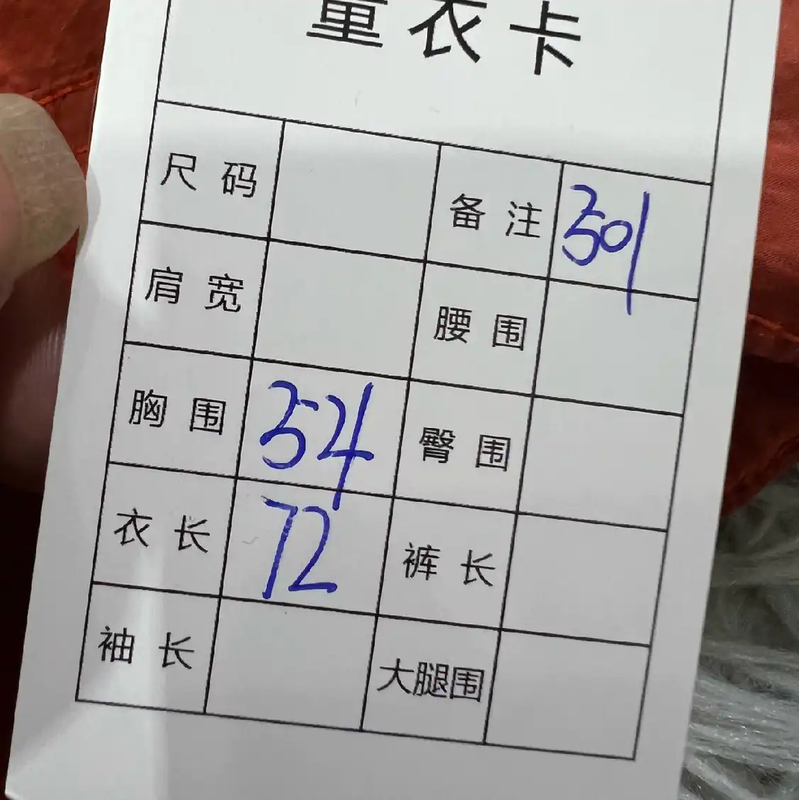 童衣卡
尺码 备注 501
肩宽 腰围
胸围 54 臀围
衣长 72 裤长
袖长 大腿围